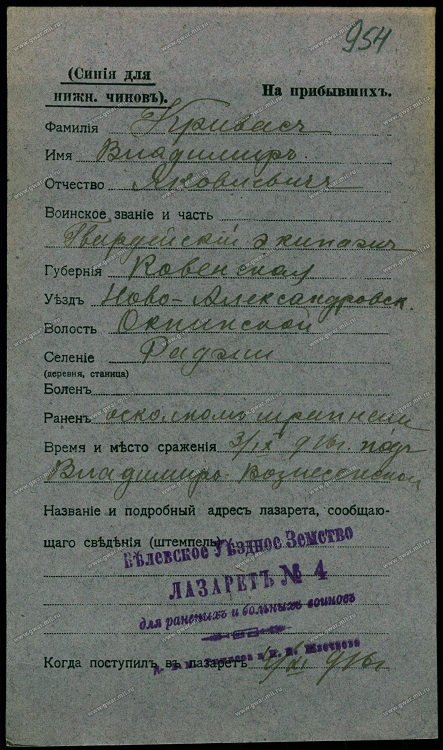 954
(Синія для
нижн. чиновъ).
На прибывшихъ.
Фамилія
Имя Владимиръ
Отчество Яковлевичъ
Воинское званіе и часть
Гвардейскій экипажъ
Губернія Ковенская
Уѣздъ Ново-Александровск.
Волость
Селеніе
(деревня, станица)
Боленъ
Раненъ осколкомъ шрапнели
Время и мѣсто сраженія 3/IX 916г. подъ
Владимиръ-
Названіе и подробный адресъ лазарета, сообщаю-
щаго свѣдѣнія (штемпель)
Бѣлевское Уѣздное Земство
ЛАЗАРЕТЪ № 4
для раненыхъ и больныхъ воиновъ
Когда поступилъ въ лазаретъ 916г
www.gwar.mil.ru